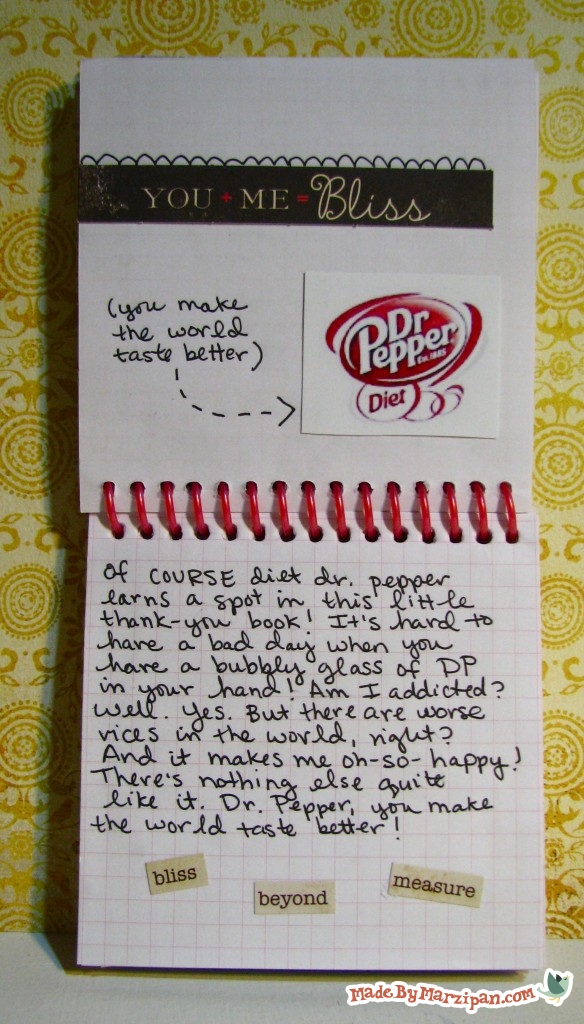 YOU + ME = Bliss
(you make
the world
taste better)
Dr
Pepper
Est. 1885
Diet
Of COURSE diet dr. pepper
earns a spot in this little
thank-you book! It's hard to
have a bad day when you
have a bubbly glass of DP
in your hand! Am I addicted?
Well. Yes. But there are worse
vices in the world, right?
And it makes me oh-so-happy!
There's nothing else quite
like it. Dr. Pepper, you make
the world taste better!
bliss
beyond
measure
MadeByMarzipan.com